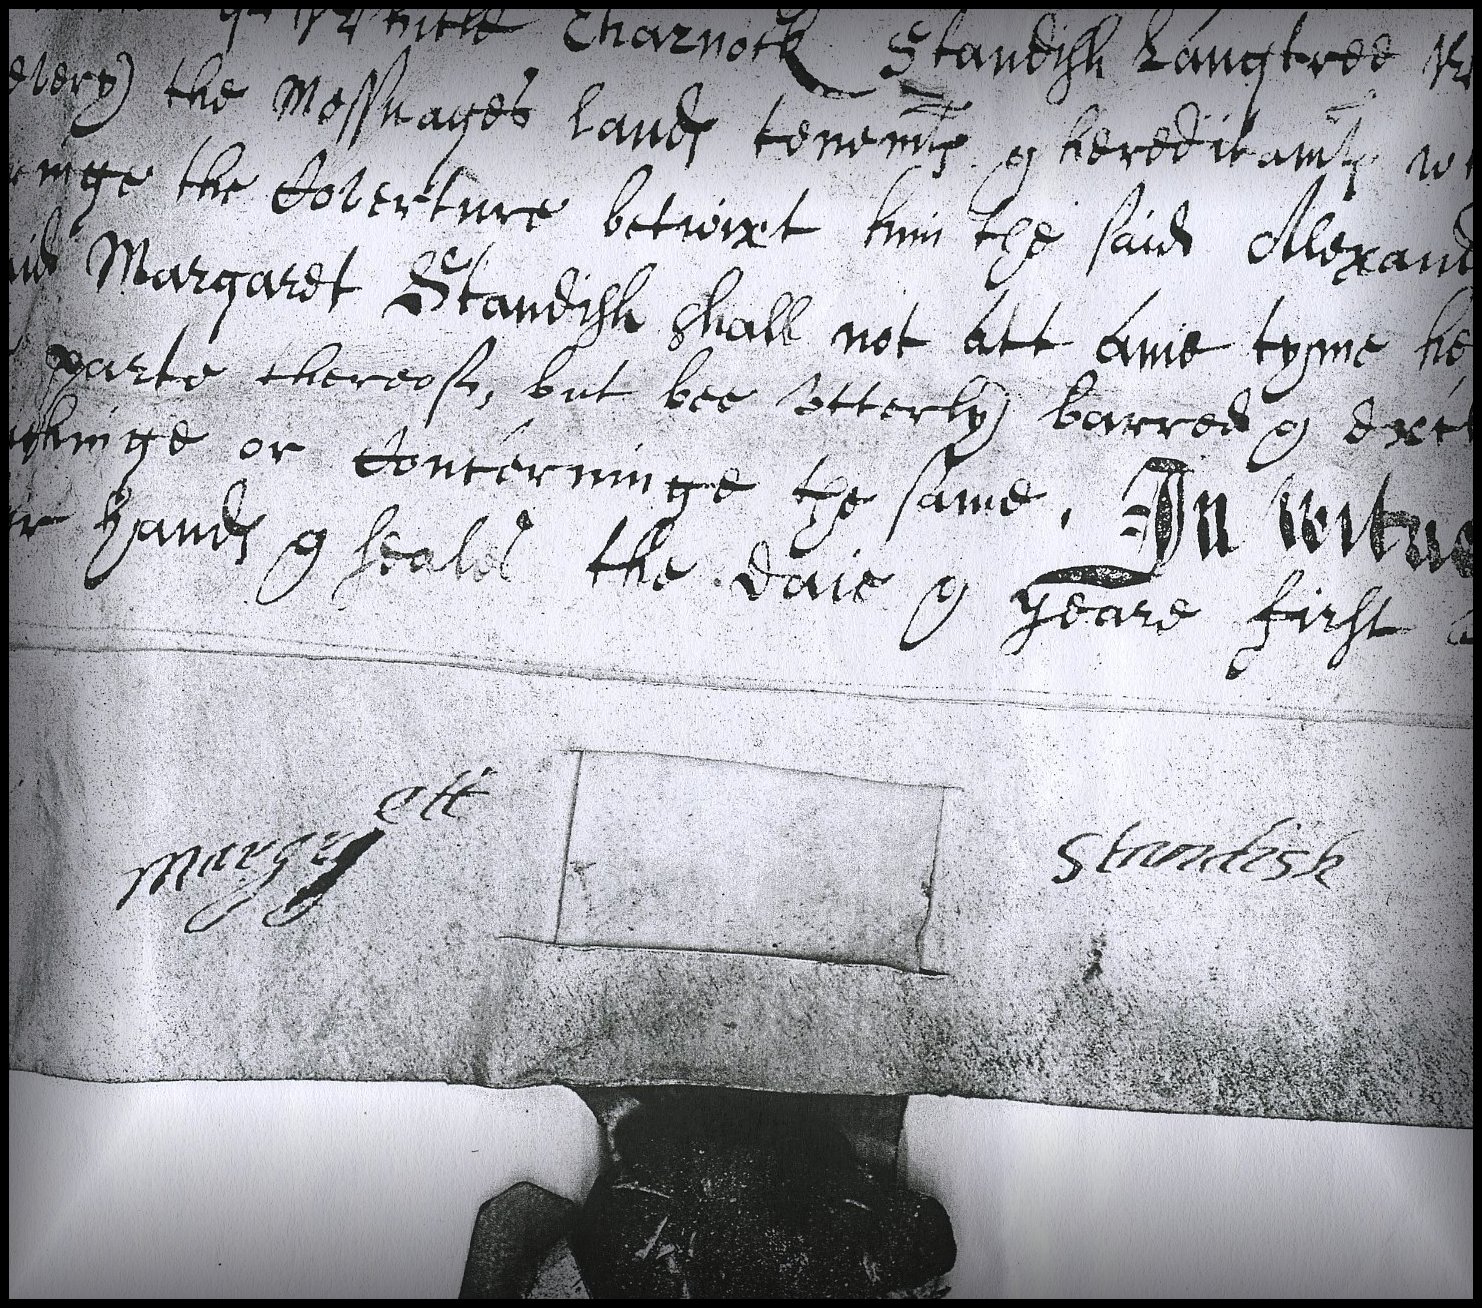 Charnock Standish Langtree
the Messuages landes tenemtes & hereditamtes
the Coverture betwixt him the said Alexand
Margaret Standish shall not att anie tyme he
parte thereof, but bee Vtterly barred & exc
or Concerninge the same. In witne
handes & seales the daie & yeare first
Margrett Standish